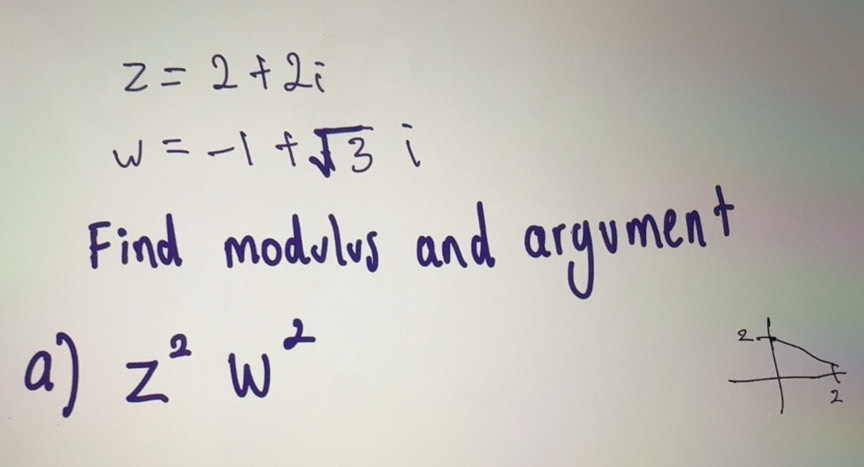 z = 2 + 2i
w = -1 + √3 i
Find modulus and argument
a) z² w²
2
2